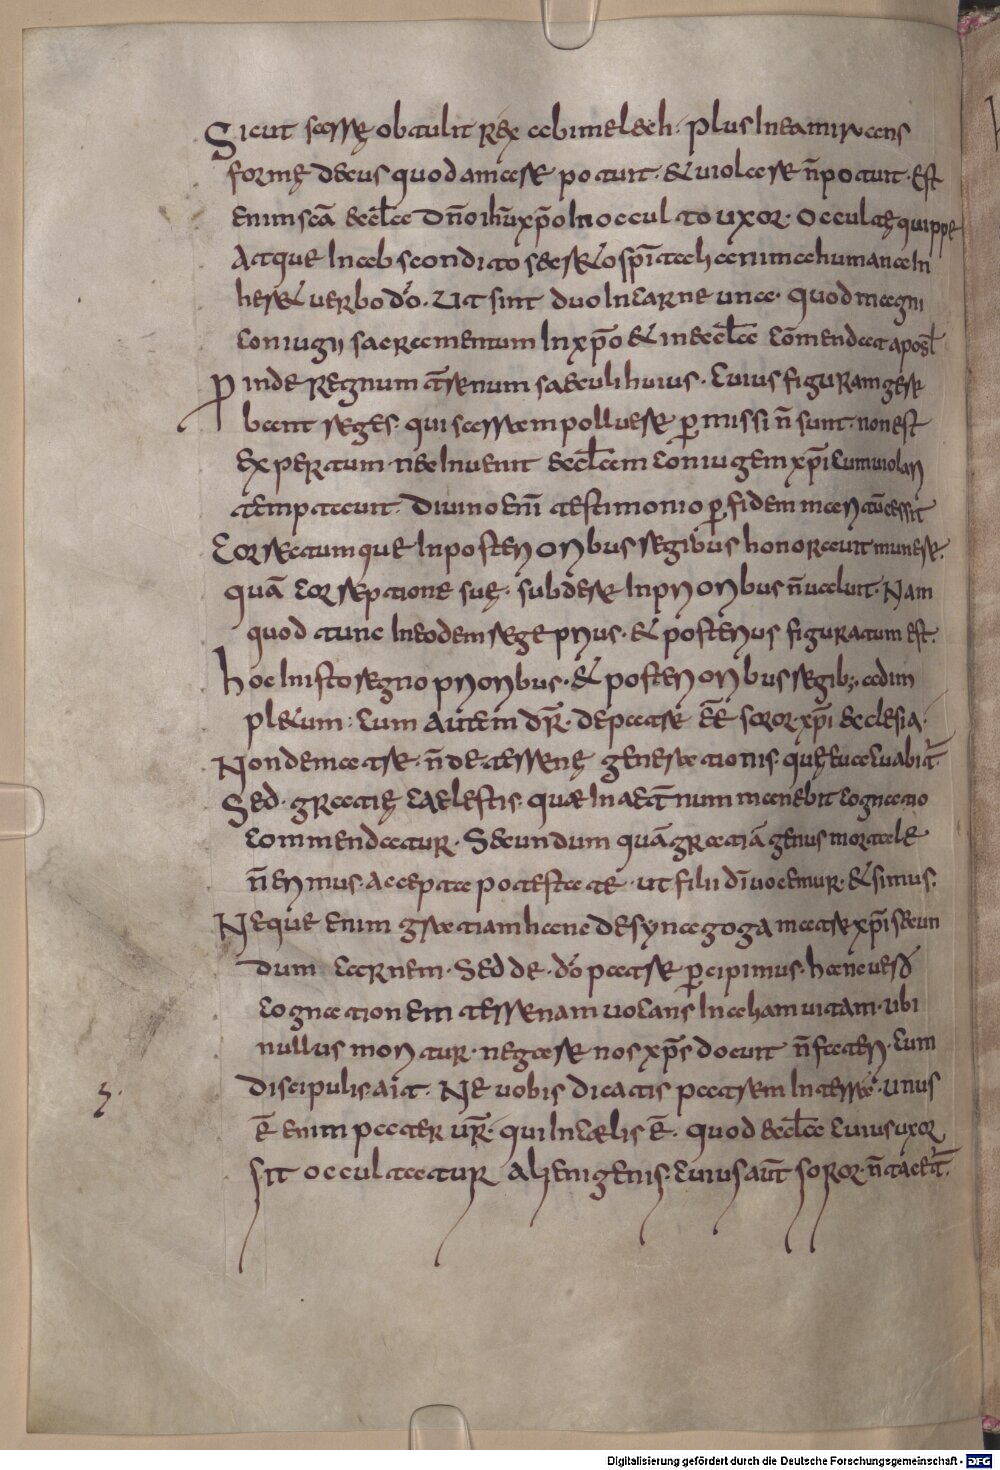 Sicut sarrę obtulit rex abimelech· plus in ea mirans
formę decus quod amare potuit· & uiolare n̄ potuit· est
enim scā eccl̄ae dn̄o ihū xp̄o In occulto uxor· Occultę quippe
Atque In abscondito secr&o sp̄itali anima humana In
her& uerbo dı̄o· Ut sint duo In carne una· quod magni
coniugii sacramentum In xp̄o & in eccl̄ae cōmendat apost̄l
Proinde Regnum t̄renum saeculi huius· cuius figuram gere
bant reges· qui sarram polluere p̄missi n̄ sunt· non est
expertum· nec Inuenit eccl̄am coniugem xp̄i cum uiolari
temptauit· Diuino enī testimonio p̄ fidem martȳ cessit
Correctumque In posterioribus regibus honorauit munere·
quā correptione suę· subdere In prioribus n̄ ualuit· Nam
quod tunc In eodem rege prius· & posterius figuratum est·
hoc In isto regno prioribus· & posterioribus regib; adim
pl&um· Cum autem dr̄· de patre ēē soror· xp̄i ecclesia·
Non de matre· n̄ de· terrenę generationis· quę euacuabit̄·
Sed· gratię caelestis· quae In aet̄num manebit cognatio
commendatur· Secundum quā gratiā genus mortale
n̄ erimus· accepta potestate· ut filii dı̄ uocemur· & simus·
Neque enim gratiam hanc de synagoga matre xp̄i secun
dum carnem· Sed de· dı̄o patre p̄cipimus· hanc uero
cognationem terrenam uocans In aliam uitam· ubi
nullus moritur· negare nos xp̄s docuit n̄ fateri· cum
discipulis· ait· Ne uobis dicatis patrem In terra· unus
ē enim pater ur̄· qui In caelis ē· quod eccl̄ae cuius uxor
sit occultatur alienigenis· cuius aūt soror· n̄ tacet̄·
Digitalisierung gefördert durch die Deutsche Forschungsgemeinschaft - DFG